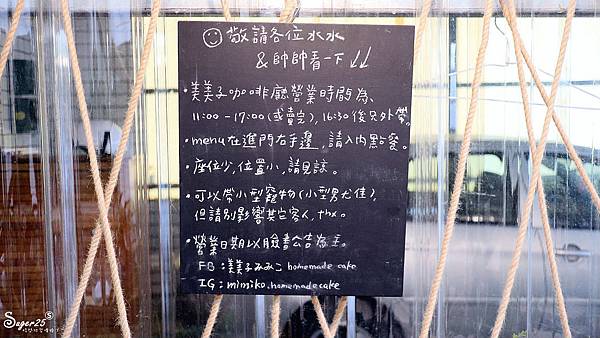 敬請各位水水
& 帥帥看一下 ↓↓
・美美子咖啡廳營業時間為、
11:00 - 17:00 (或賣完), 16:30 後只外帶。
・menu在進門右手邊, 請入內點餐。
・座位少, 位置小, 請見諒。
・可以帶小型寵物(小型男尤佳),
但請別影響其它客人, thx。
・營業日期以臉書公告為主。
FB : 美美子みみこ homemade cake
IG : mimiko.homemadecake
Sager25